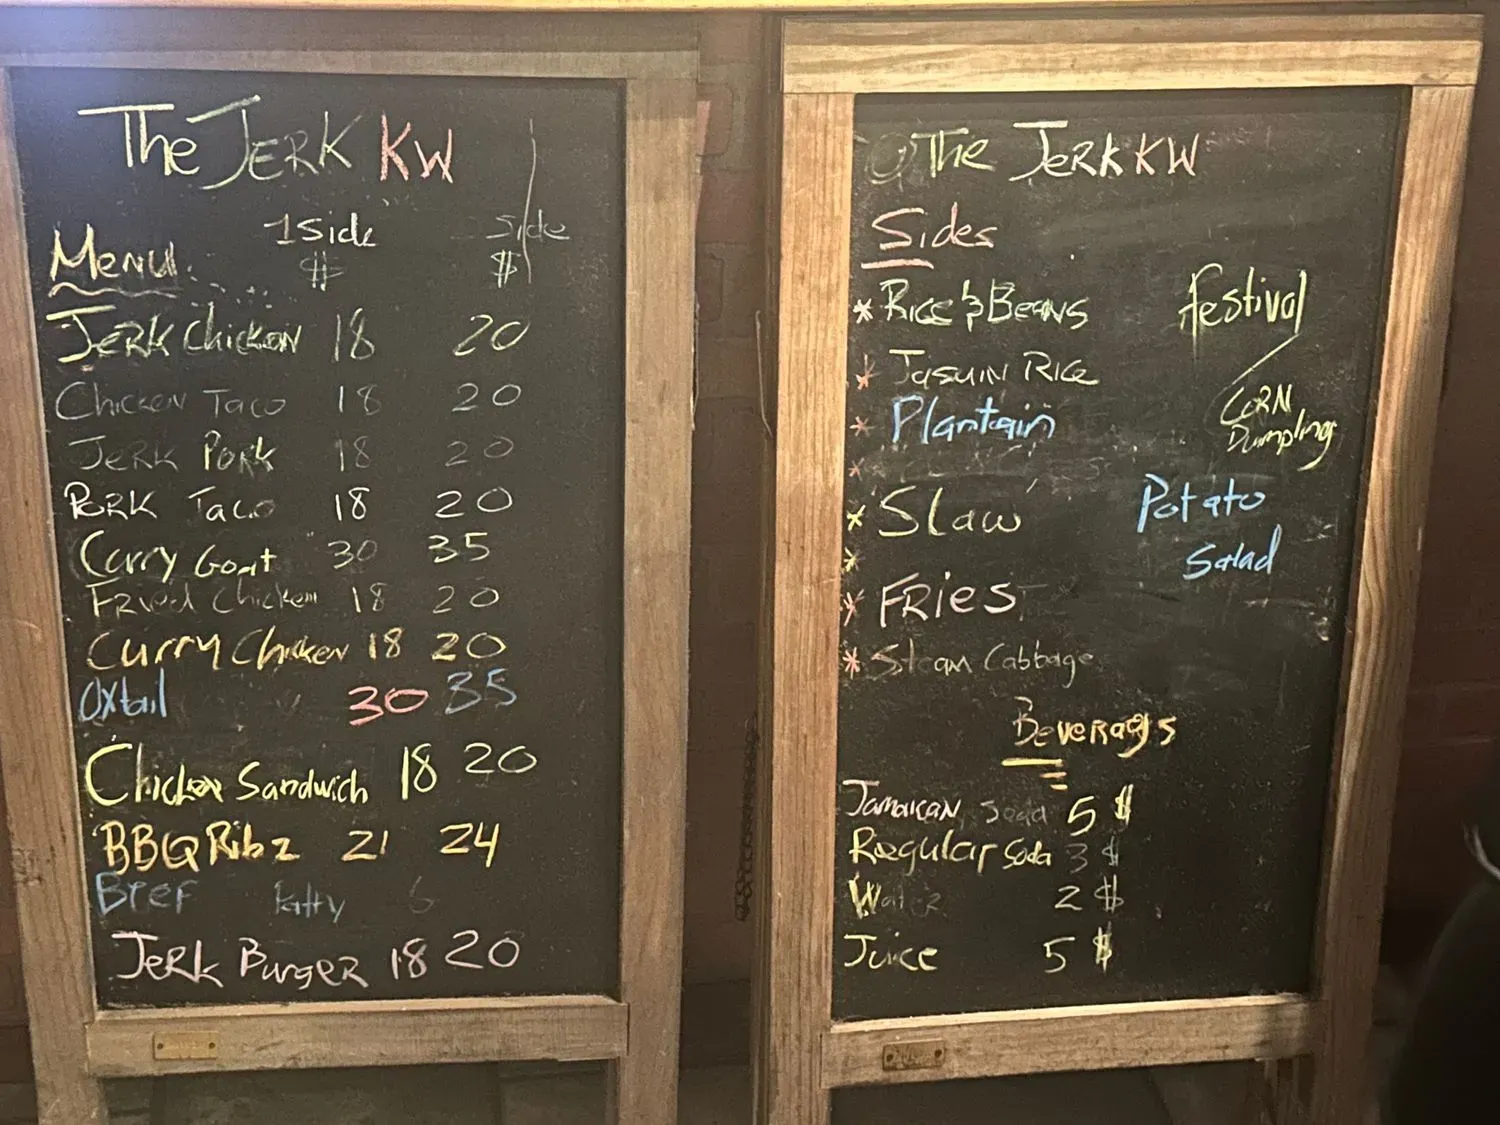 The JERK KW
Menu 1 Side Side
$ $
JERK Chicken 18 20
Chicken Taco 18 20
JERK PORK 18 20
PORK Taco 18 20
Curry Goat 30 35
FRied Chicken 18 20
Curry Chicken 18 20
Oxtail 30 35
Chicken Sandwich 18 20
BBQ Ribz 21 24
Beef Patty 6
JERK BurgeR 18 20
@ The JERK KW
Sides
* RICE & BEANS
* JASMIN RICE
* Plantain
*
* Slaw
*
* FRies
* Steam Cabbage
festival
CORN
Dumplings
Potato
Salad
Beverages
Jamaican Soda 5 $
Regular Soda 3 $
Water 2 $
Juice 5 $